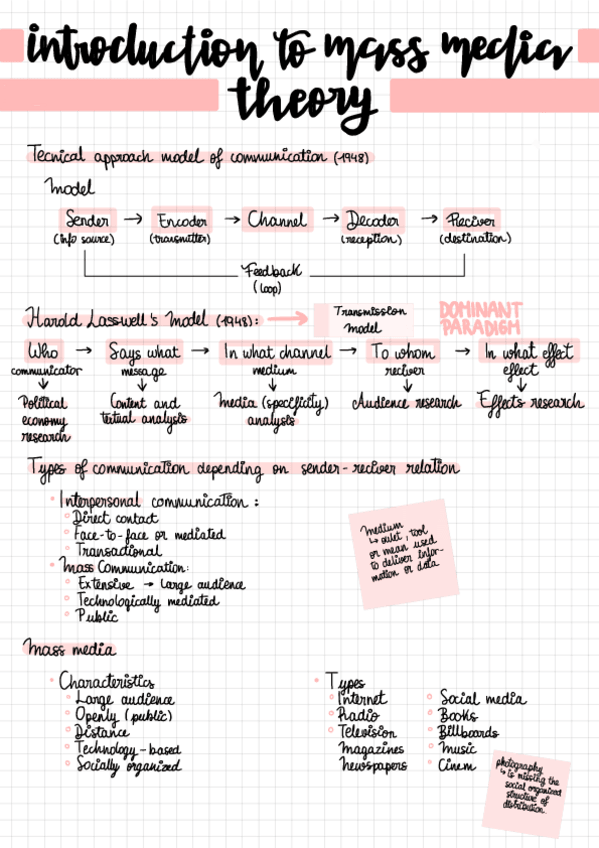 introduction to mass media
theory
Tecnical approach model of communication (-1948)
Model
Sender → Encoder → Channel → Decoder → Reciver
(info source) (transmitter) (reception) (destination)
Feedback
(loop)
Harold Lasswell's Model (1948): → Transmission
Model
DOMINANT
PARADIGM
Who → Says what → In what channel → To whom → In what effect
communicator message medium reciver effect
Political Content and Media (specificity) Audience research Effects research
economy textual analysis analysis
research
Types of communication depending on sender-reciver relation
Interpersonal communication:
Direct contact
Face-to-face or mediated
Transactional
Mass Communication:
Extensive → Large audience
Technologically mediated
Public
Medium
↳ outlet, tool
or mean used
to deliver infor-
mation or data
Mass media
Characteristics
Large audience
Openly (public)
Distance
Technology-based
Socially organized
Types
Internet
Radio
Television
Magazines
Newspapers
Social media
Books
Billboards
Music
Cinem
photography
↳ is missing the
social organized
structure of
distribution.